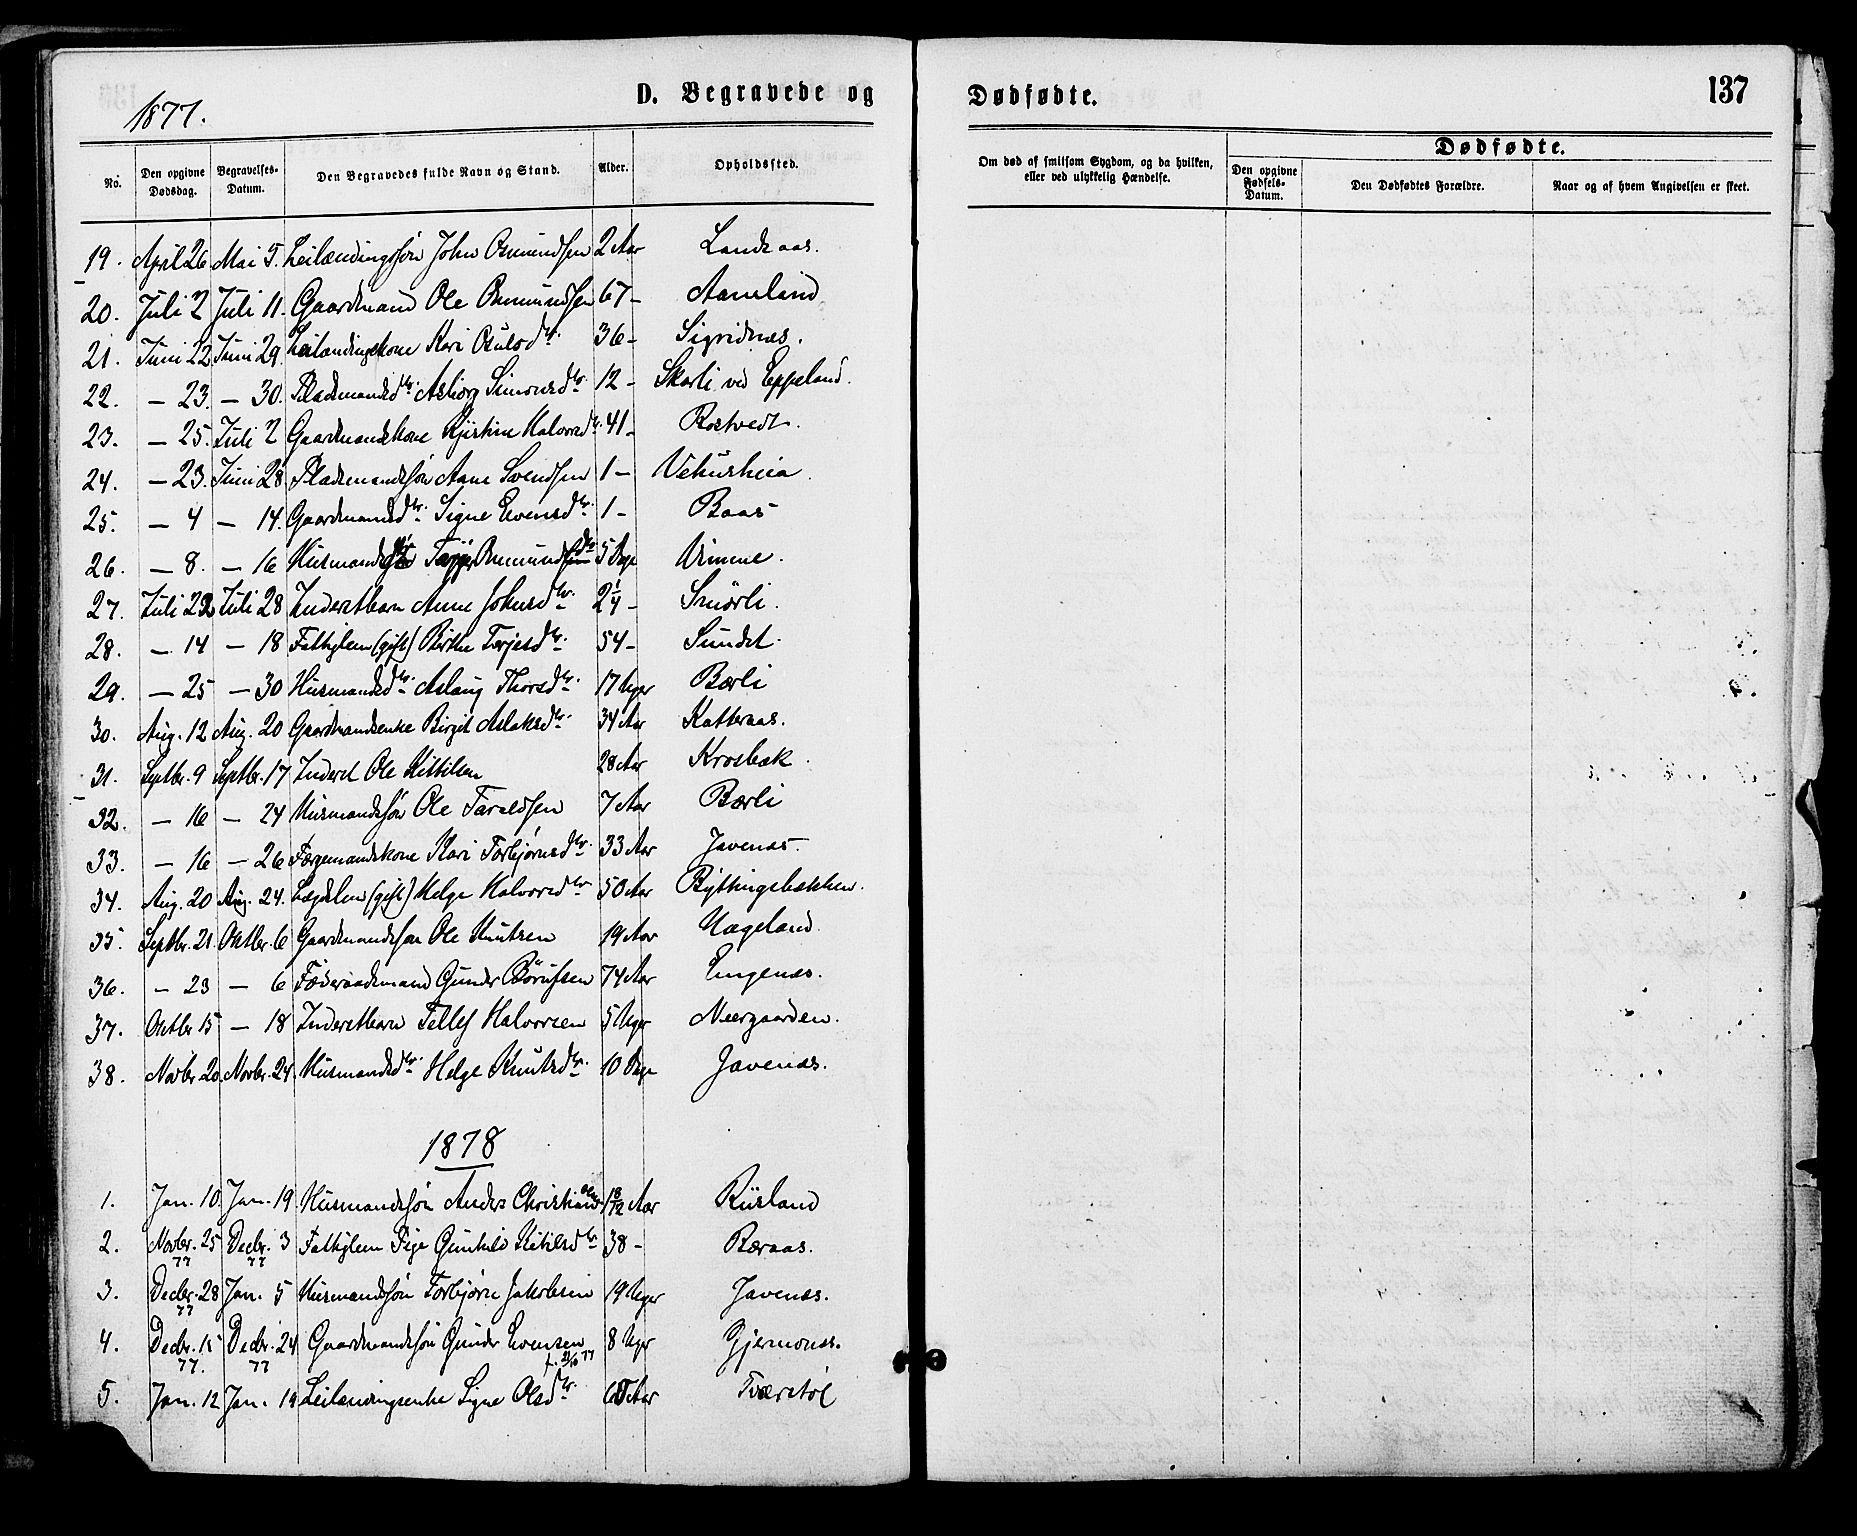 D. Begravede og Dødfødte. 137
1877.
No. Den opgivne Dødsdag. Begravelses-Datum. Den Begravedes fulde Navn og Stand. Alder. Opholdssted. Om død af smitsom Sygdom, og da hvilken, eller ved ulykkelig Hændelse. Dødfødte. Den opgivne Fødsels-Datum. Den Dødfødtes Forældre. Naar og af hvem Angivelsen er skeet.
19. April 26 Mai 5. Leilændingssøn John Osmundsen 2 Aar Landsaas.
20. Juli 2 Juli 11. Gaardmand Ole Osmundsen 67 - Aamland
21. Juni 22 Juni 29. Leilændingskone Kari Osulsdtr. 36 - Sigridnæs.
22. - 23. - 30. Pladsmandsdtr. Asbiorg Simonsdtr. 12 - Skarli ved Eppeland.
23. - 25. Juli 2 Gaardmandskone Kjistine Halvorsdtr. 41 - Rostvedt.
24. - 23. Juni 28 Pladsmandssøn Aane Svendsen 1 - Vehusheia.
25. - 4 - 14. Gaardmandsdtr. Signe Evensdtr. 1 - Baas
26. - 8. - 16 Husmands Osmunds 5 Dage Vimme.
27. Juli 22 Juli 28 Inderstbarn Anne Johnsdtr. 2 1/4 - Smørli.
28. - 14 - 18 Fattiglem (gift) Birthe Terjesdtr. 54 - Sundet.
29. - 25 - 30 Husmandsdtr. Aslaug Thorsdtr. 17 Uger Bærli
30. Aug. 12 Aug. 20 Gaardmandsenke Birgit Aslaksdtr. 34 Aar Katteraas.
31. Septbr. 9 Septbr. 17 Inderst Ole Kittilsen 28 Aar Krosbæk.
32. - 16 - 24 Husmandssøn Ole Taraldsen 7 Aar Bærli
33. - 16 - 26 Færgemandskone Kari Torbjørnsdtr. 33 Aar Javenæs.
34. Aug. 20 Aug. 24. Lægdslem (gift) Helge Halvorsdtr 50 Aar Bÿttingsbækken.
35. Septbr. 21. Oktbr. 6 Gaardmandssøn Ole Knutsen 19 Aar Uageland.
36. - 23 - 6 Føderaadsmand Gunder Børufsen 74 Aar Engenæs.
37. Oktbr 15 - 18 Inderstbarn Tellef Halvorsen 5 Uger Neergaarden.
38. Novbr 20. Novbr. 24. Husmandsdtr. Helge Knutsdtr. 10 Dage Javenæs.
1878
1. Jan. 10. Jan. 19 Husmandssøn Anders Christiansen 1 8/12 Aar Riisland
2. Novbr. 25 77 Decbr. 3 77 Fattiglem Pige Gunhild Kitilsdtr 38 - Bæraas.
3. Decbr. 28 77 Jan. 5 Husmandssøn Torbjørn Jakobsen 19 Uger Javenæs.
4. Decbr. 15 77. Decbr. 24 77 Gaardmandssøn Gunder Evensen 8 Uger Gjermonæs.
5. Jan. 12 Jan. 19 Leilændingsenke Signe Olsdtr. Aar Tværstøl